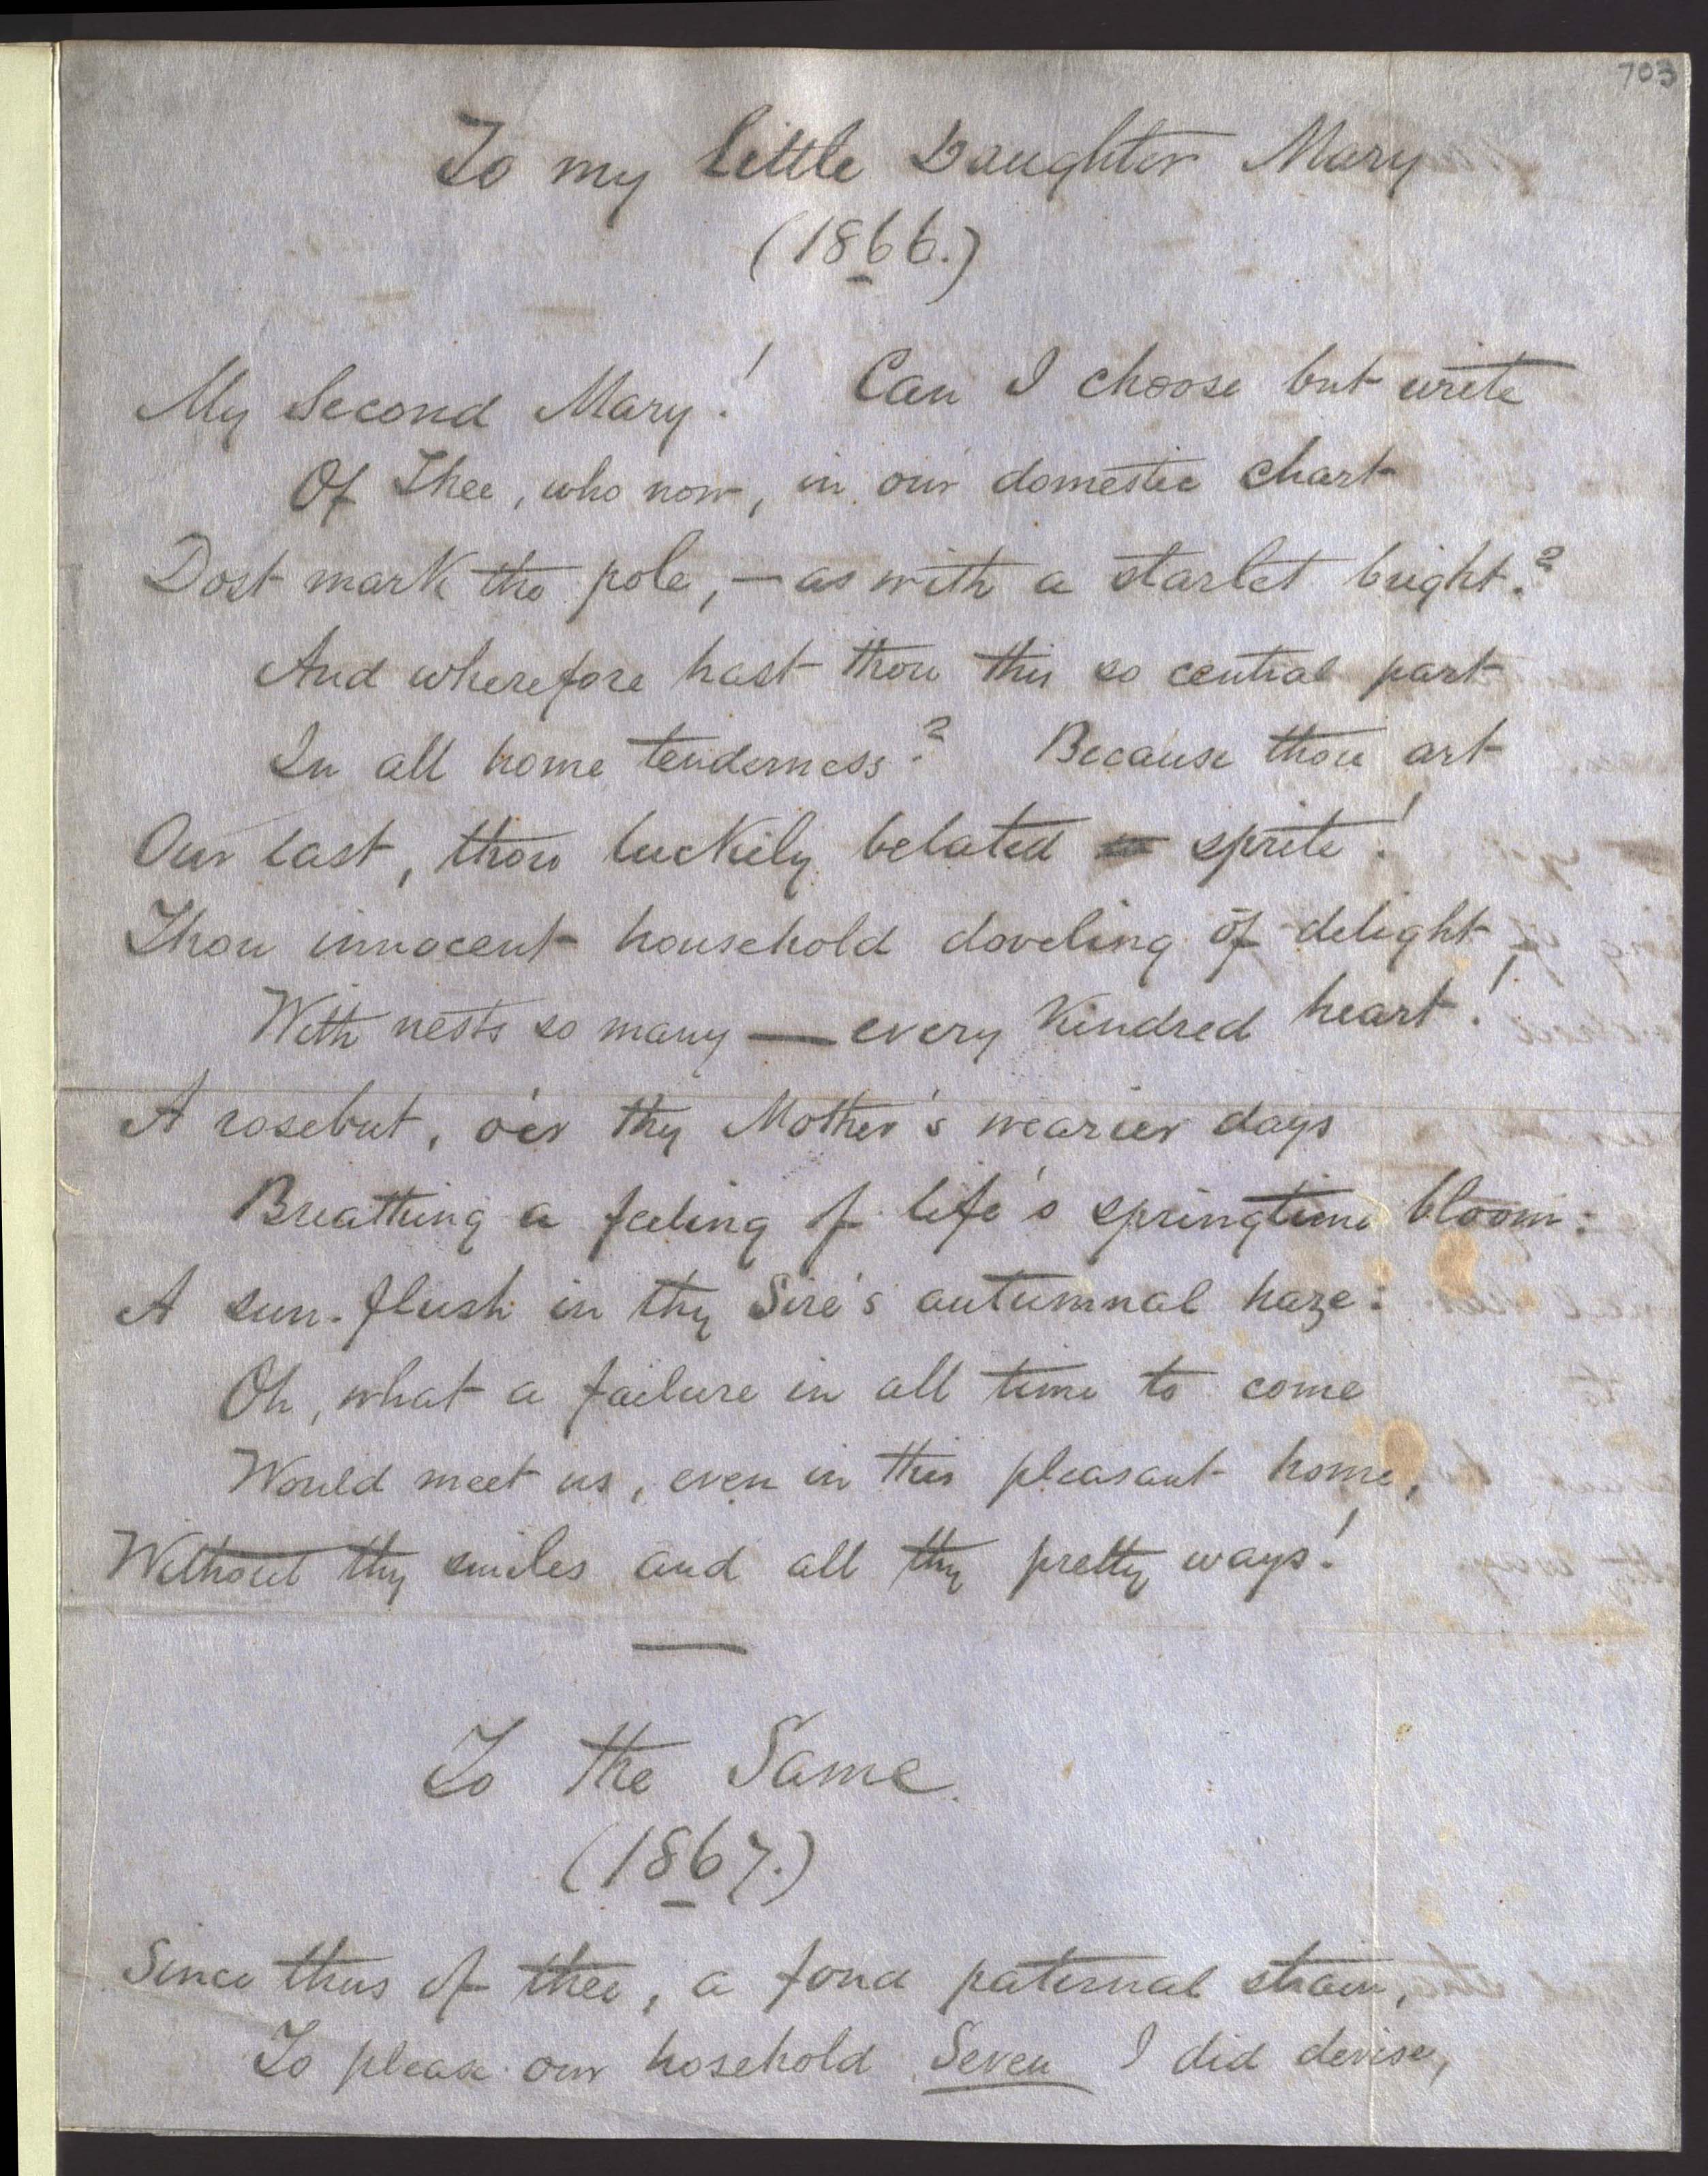 703
To my little Daughter Mary
(1866.)
My Second Mary! Can I choose but write
Of Thee, who now, in our domestic chart
Dost mark the pole, — as with a starlet bright?
And wherefore hast thou this so central part
In all home tenderness? Because thou art
Our last, thou luckily belated sprite!
Thou innocent household doveling of delight,
With nests so many — every kindred heart!
A rosebut, o'er thy Mother's wearier days
Breathing a feeling of life's springtime bloom:
A sun-flush in thy Sire's autumnal haze:
Oh, what a failure in all time to come
Would meet us, even in this pleasant home,
Without thy smiles and all thy pretty ways!
To the Same.
(1867.)
Since thus of thee, a fond paternal strain,
To please our hosehold Seven I did devise,